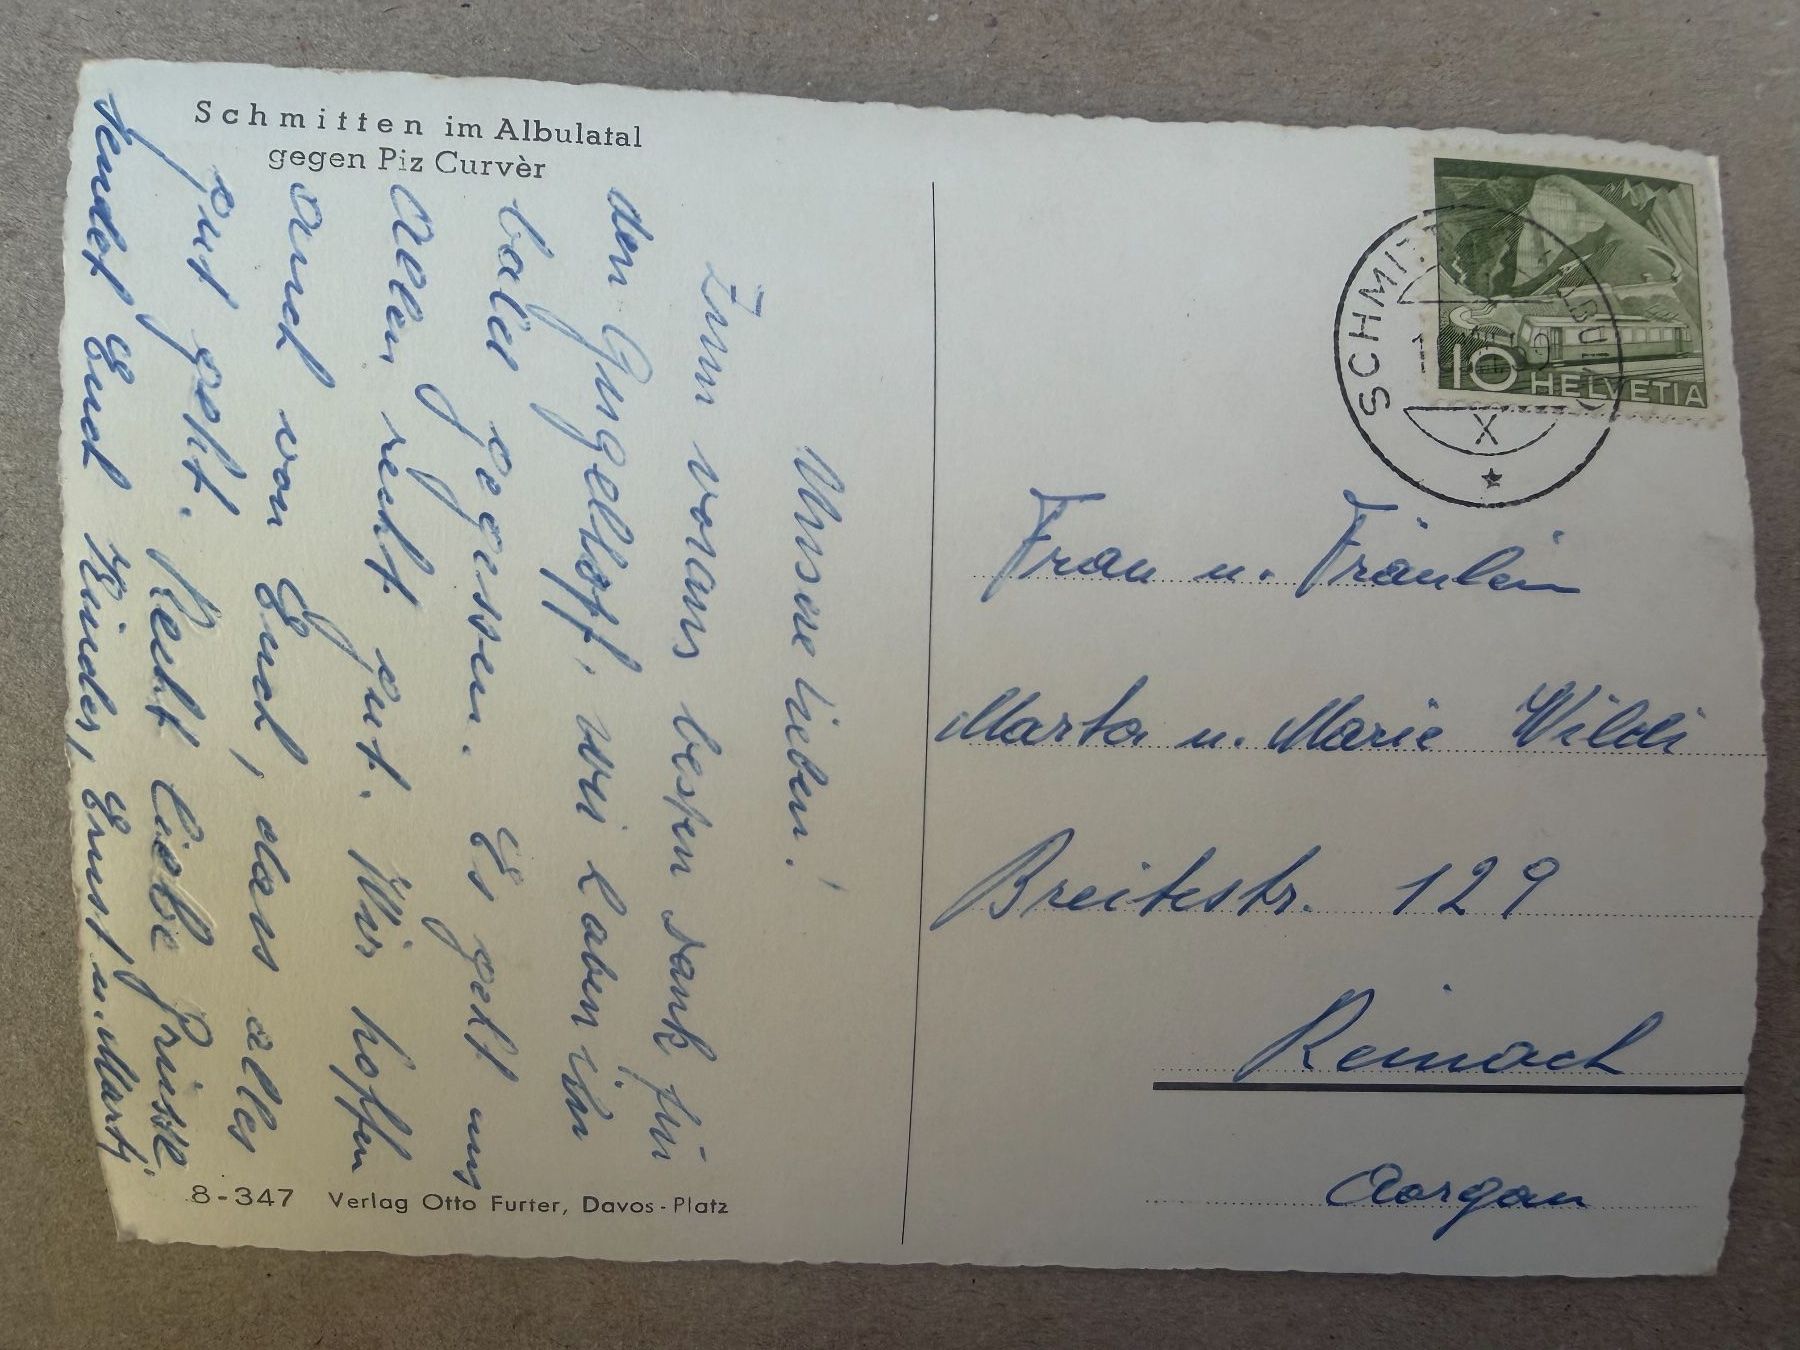 Schmitten im Albulatal
gegen Piz Curvèr
Unsere Lieben!
Zum voraus besten Dank für
den Gugelhopf, wir haben ihn
bald gegessen. Es geht uns
allen recht gut. Wir hoffen
auch von Euch, dass alles
gut geht. Recht liebe Grüsse
sendet Euch Kinder, Ernst u. Marty
8-347 Verlag Otto Furter, Davos-Platz
10 HELVETIA
X
Frau u. Fräulein
Marta u. Marie Wildi
Breitestr. 129
Reinach
Aargau